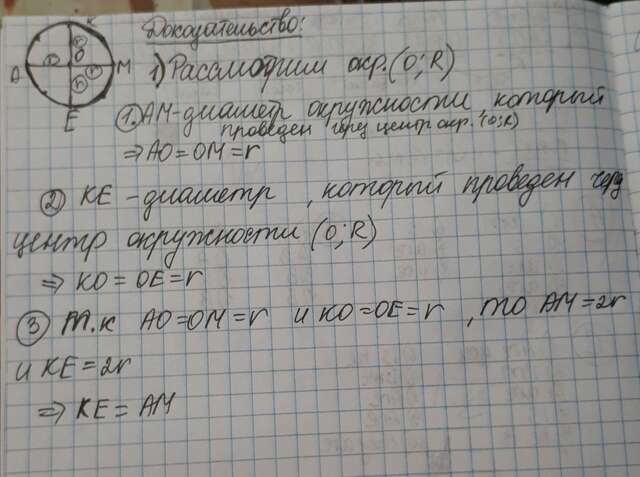 Доказательство:
К
A
M
E
r
O
r
r
r
1) Рассмотрим окр.(O;R)
1. AM-диаметр окружности, который
проведен через центр окр.(O;R)
⇒ AO=OM=r
2 KE -диаметр, который проведен через
центр окружности (O;R)
⇒ KO=OE=r
3 т.к AO=OM=r и KO=OE=r, то AM=2r
и KE=2r
⇒ KE=AM